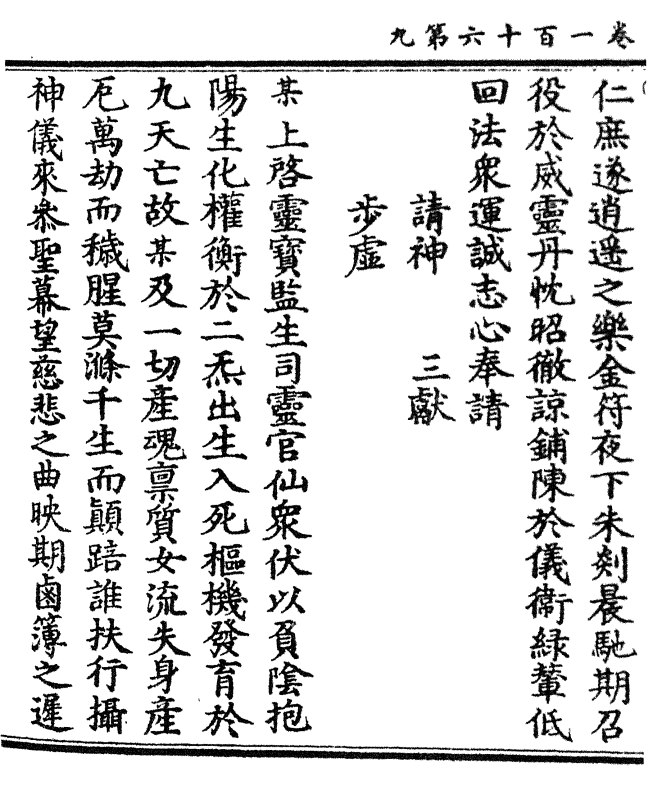 卷一百十六第九
仁庶遂逍遥之樂金符夜下朱剡晨馳期召
役於威靈丹忱昭徹諒鋪陳於儀衛緑輦低
回法衆運誠志心奉請
請神　三獻
步虛
某上啓靈寶監生司靈官仙衆伏以負陰抱
陽生化權衡於二炁出生入死樞機發育於
九天亡故某及一切產魂禀質女流失身產
厄萬劫而穢腥莫滌千生而顚踣誰扶行攝
神儀來叅聖幕望慈悲之曲映期鹵簿之遲